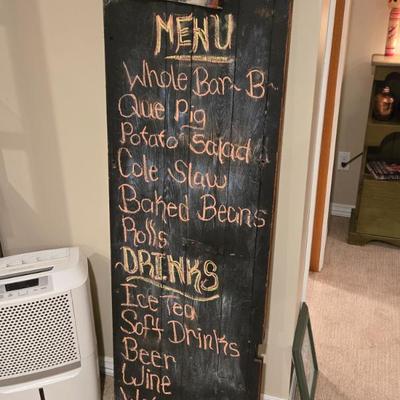 MENU
Whole Bar-B-
Que Pig
Potato Salad
Cole Slaw
Baked Beans
Rolls
DRINKS
Ice Tea
Soft Drinks
Beer
Wine